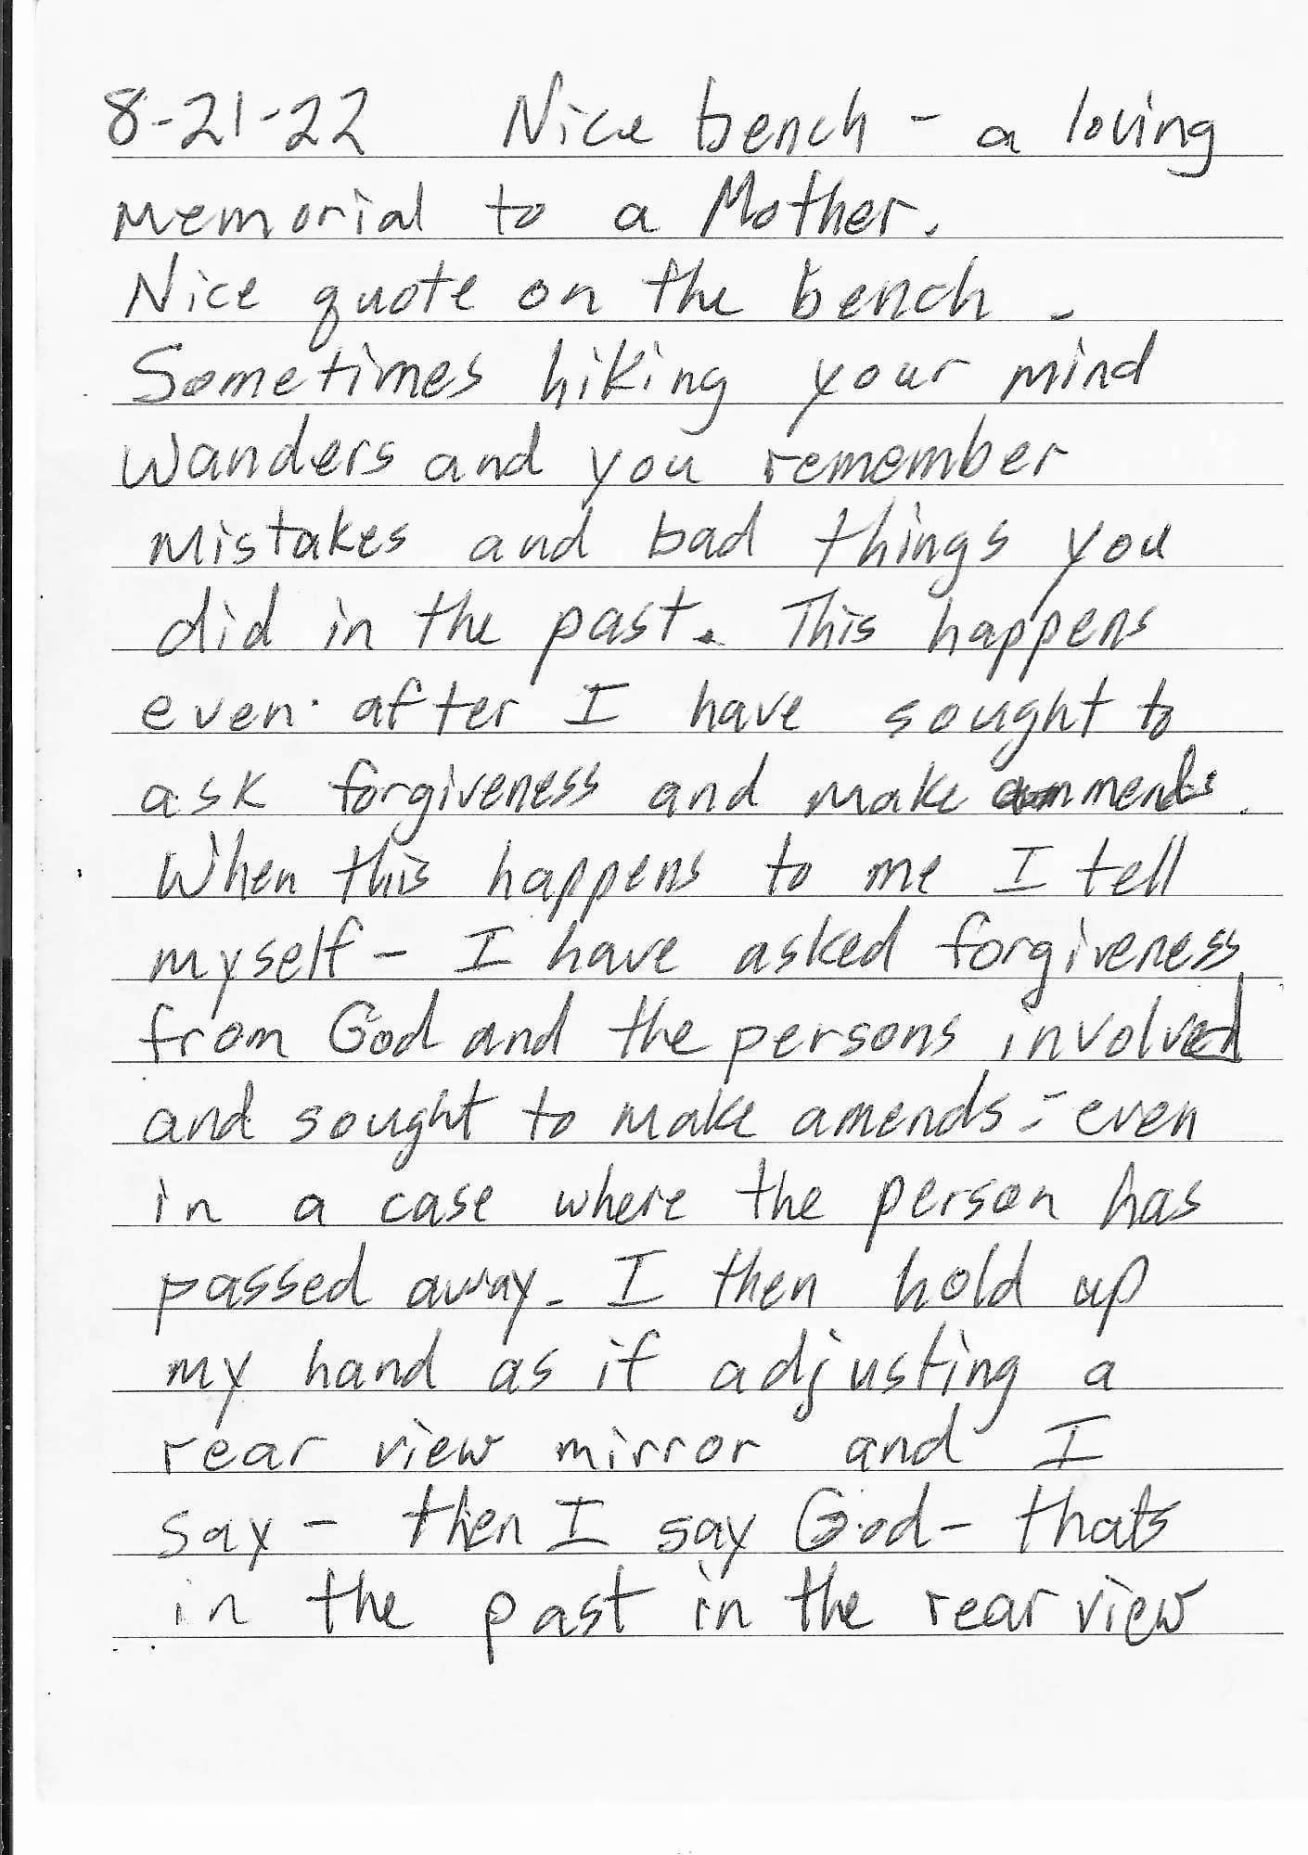 8-21-22 Nice bench - a loving
Memorial to a Mother.
Nice quote on the bench.
Sometimes hiking your mind
wanders and you remember
mistakes and bad things you
did in the past. This happens
even after I have sought to
ask forgiveness and make ammends.
When this happens to me I tell
myself - I have asked forgiveness
from God and the persons involved
and sought to make amends - even
in a case where the person has
passed away. I then hold up
my hand as if adjusting a
rear view mirror and I
say - then I say God - thats
in the past in the rear view